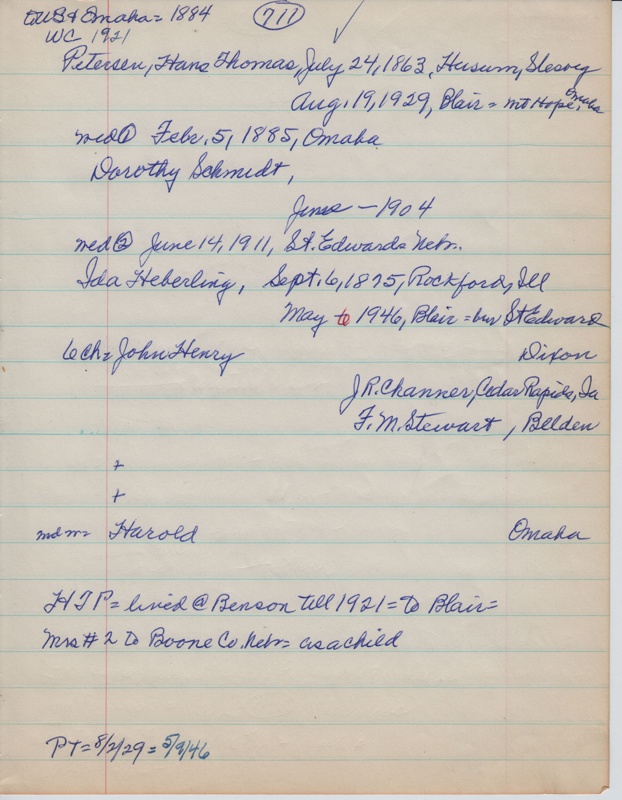 to US & Omaha = 1884
711
WC 1921
Petersen, Hans Thomas, July 24, 1863, Husum, Slesvig
Aug. 19, 1929, Blair = Mt Hope, Omaha
med ① Febr. 5, 1885, Omaha
Dorothy Schmidt,
June - 1904
med ② June 14, 1911, St. Edwards Nebr.
Ida Heberling, Sept. 6, 1875, Rockford, Ill
May 6 1946, Blair = bur St Edward
6 ch = John Henry Dixon
J R. Channer, Cedar Rapids, Ia
F. M. Stewart, Belden
+
+
Harold Omaha
HTP = lived @ Benson till 1921 = to Blair =
Mrs # 2 to Boone Co. Nebr = as a child
PT = 8/2/29 = 5/9/46